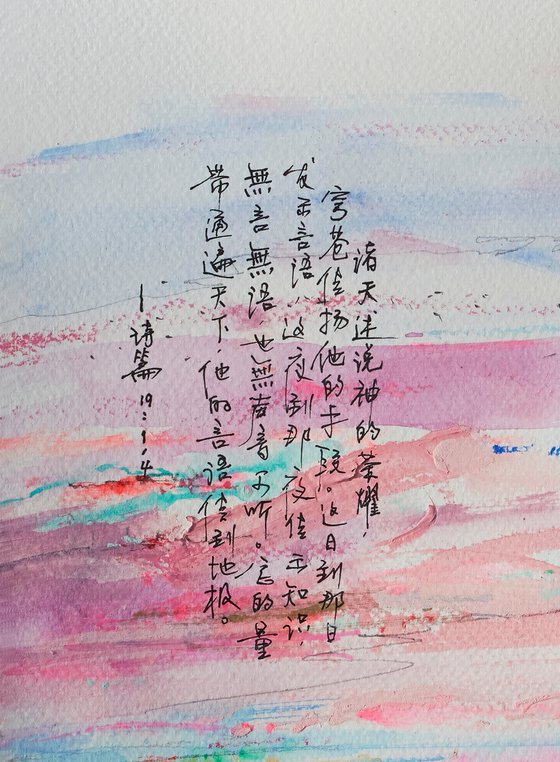 诸天述说神的荣耀，
穹苍传扬他的手段。这日到那日
发示言语，这夜到那夜传示知识，
無言無语，也無声音可听。它的量
带通遍天下，他的言语传到地极。
—诗篇19:1,4